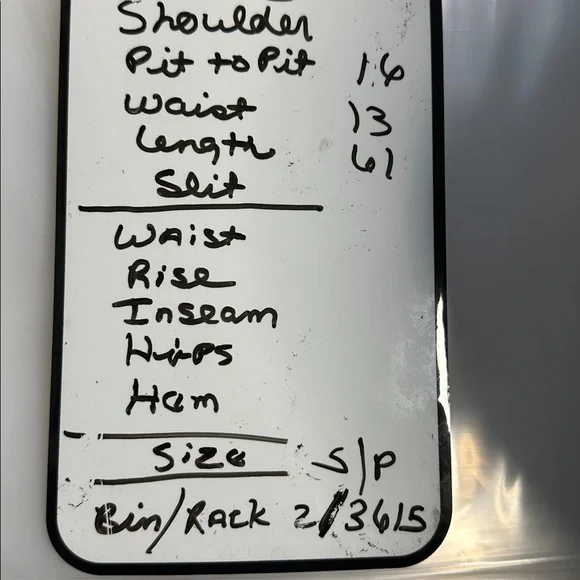 Shoulder
Pit to Pit 16
Waist 13
Length 61
Slit
Waist
Rise
Inseam
Hips
Hem
Size S/P
Bin/Rack 2/3615